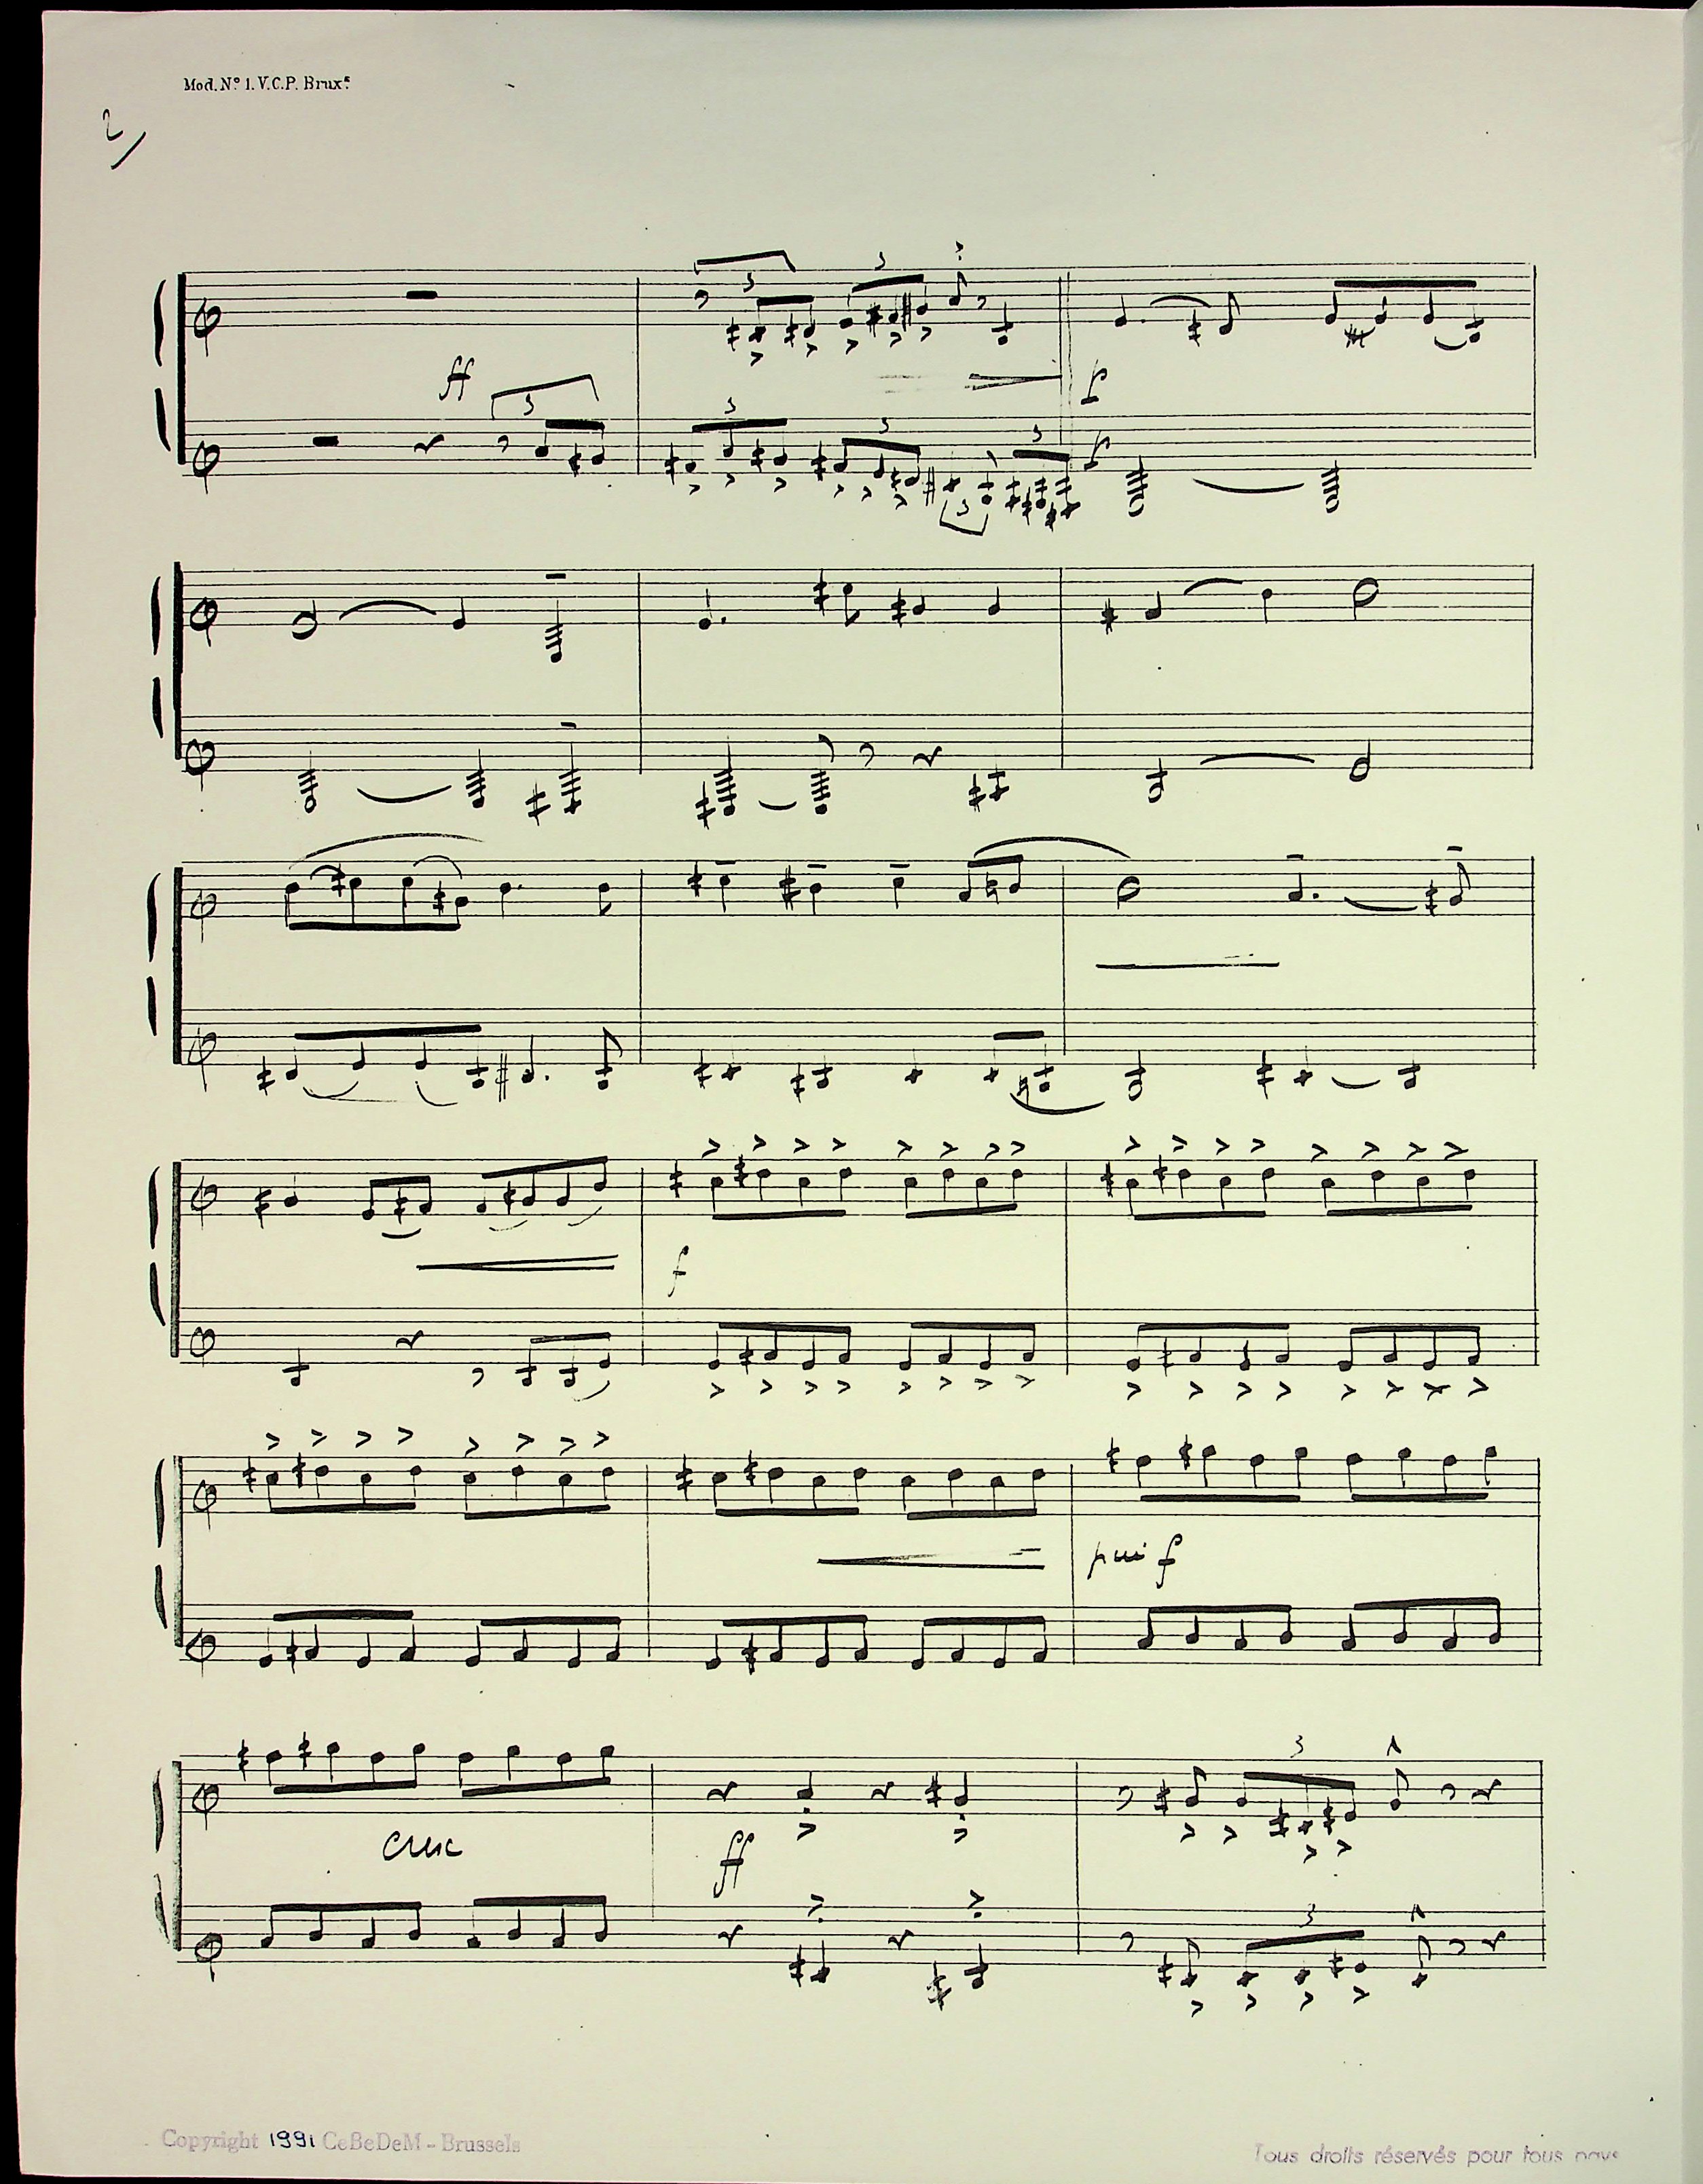 Mod. Nº 1. V.C.P. Brux.
2/
3
3
ff
3
3
3
3
3
p
p
f
più f
cresc
ff
3
3
Copyright 1991 CeBeDeM - Brussels
Tous droits réservés pour tous pays